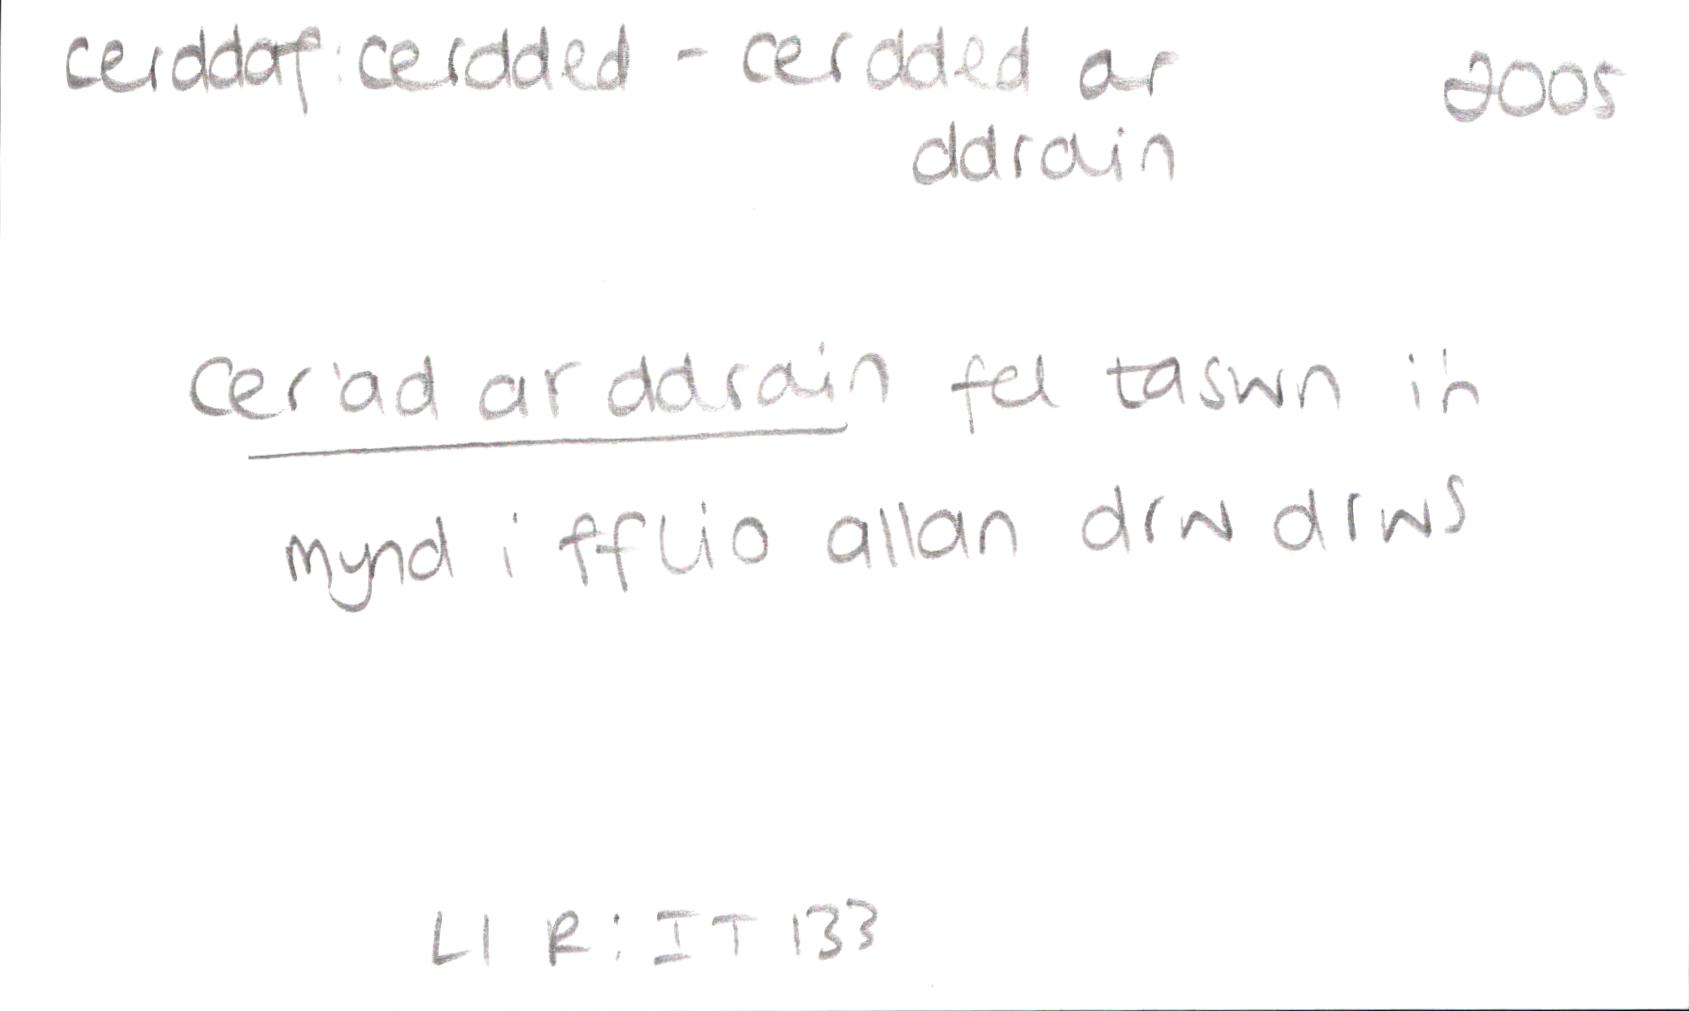 cerddaf: cerdded - cerdded ar 2005
ddrain
Cer'ad ar ddrain fel taswn i'n
mynd i fflio allan drw drws
Ll R: IT 133